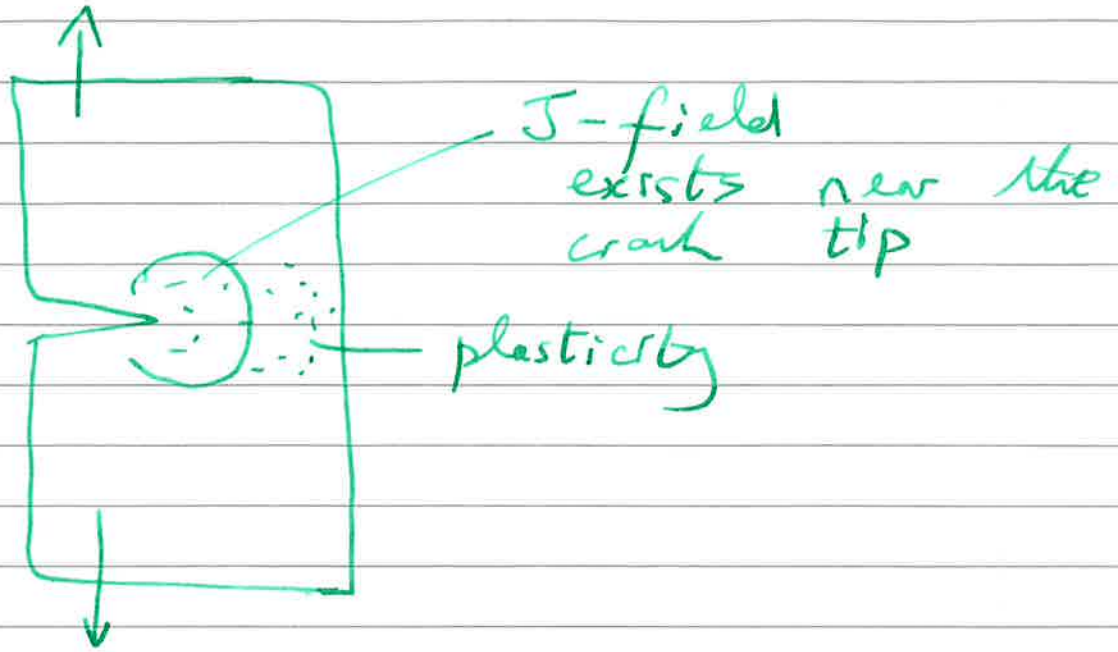 J-field
exists near the
crack tip
plasticity